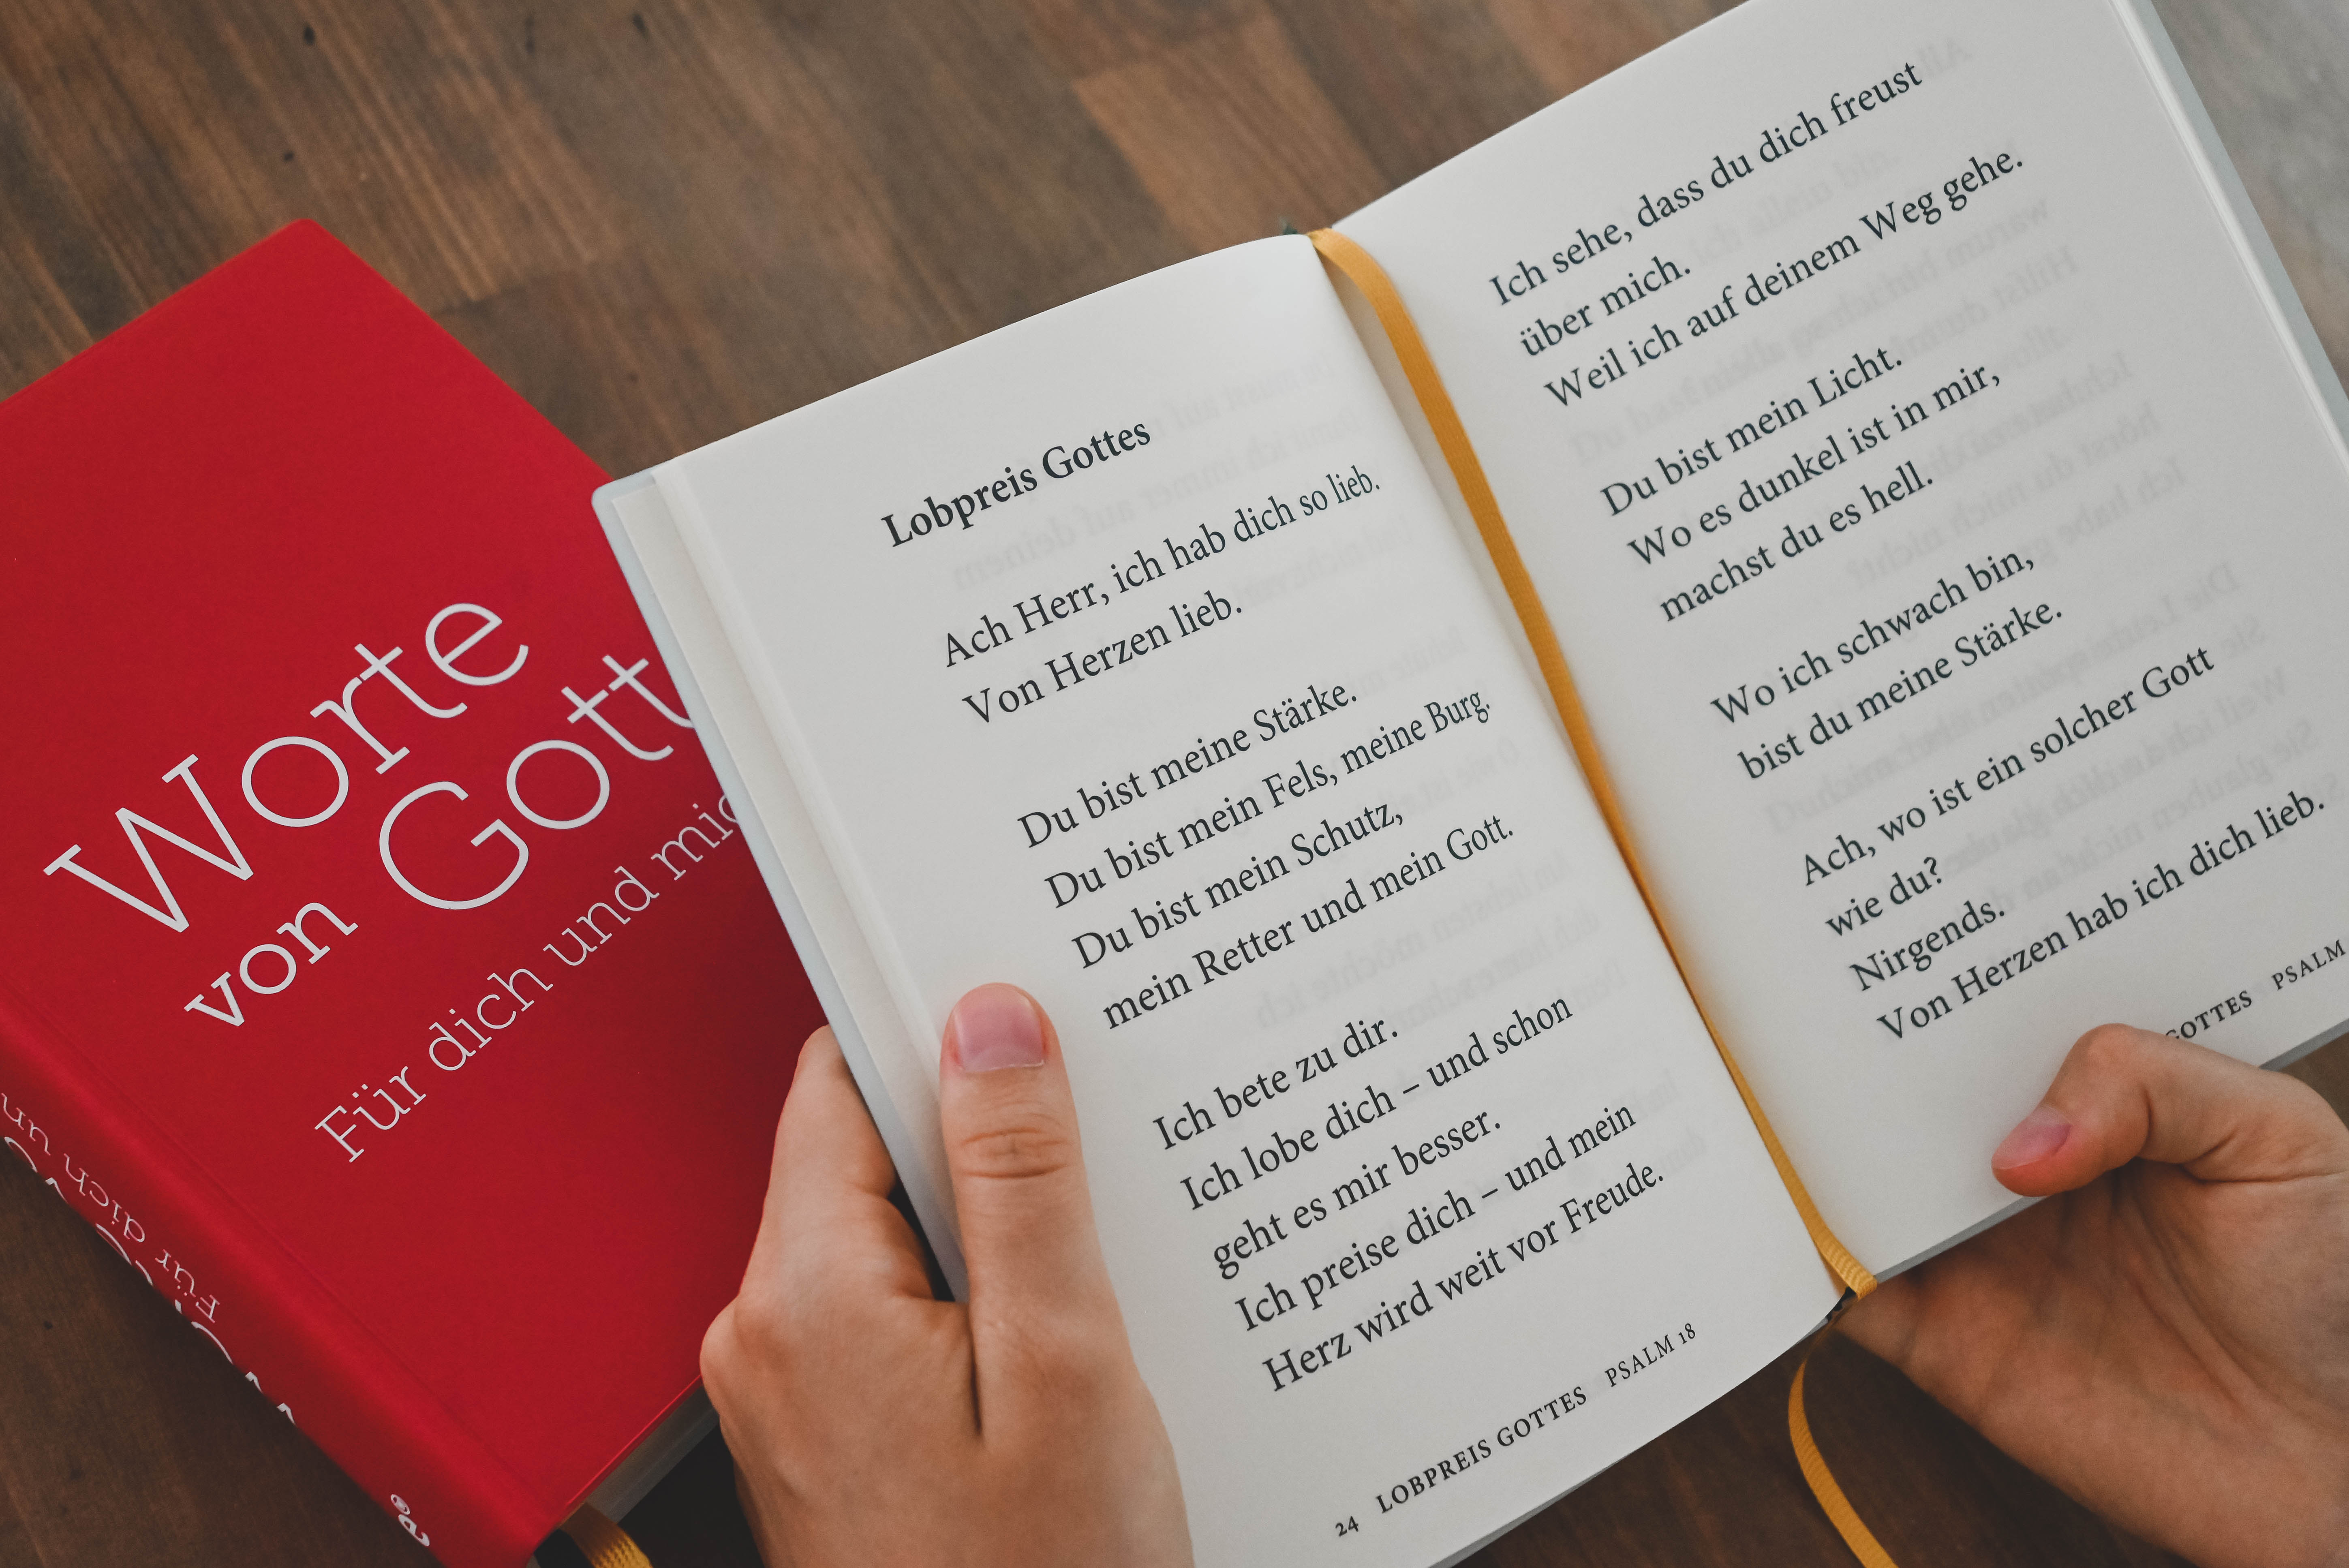 Worte
von Gott
Für dich und
Für dich
Lobpreis Gottes
Ach Herr, ich hab dich so lieb.
Von Herzen lieb.
Du bist meine Stärke.
Du bist mein Fels, meine Burg.
Du bist mein Schutz,
mein Retter und mein Gott.
Ich bete zu dir.
Ich lobe dich – und schon
geht es mir besser.
Ich preise dich – und mein
Herz wird weit vor Freude.
24 LOBPREIS GOTTES PSALM 18
Ich sehe, dass du dich freust
über mich.
Weil ich auf deinem Weg gehe.
Du bist mein Licht.
Wo es dunkel ist in mir,
machst du es hell.
Wo ich schwach bin,
bist du meine Stärke.
Ach, wo ist ein solcher Gott
wie du?
Nirgends.
Von Herzen hab ich dich lieb.
GOTTES PSALM